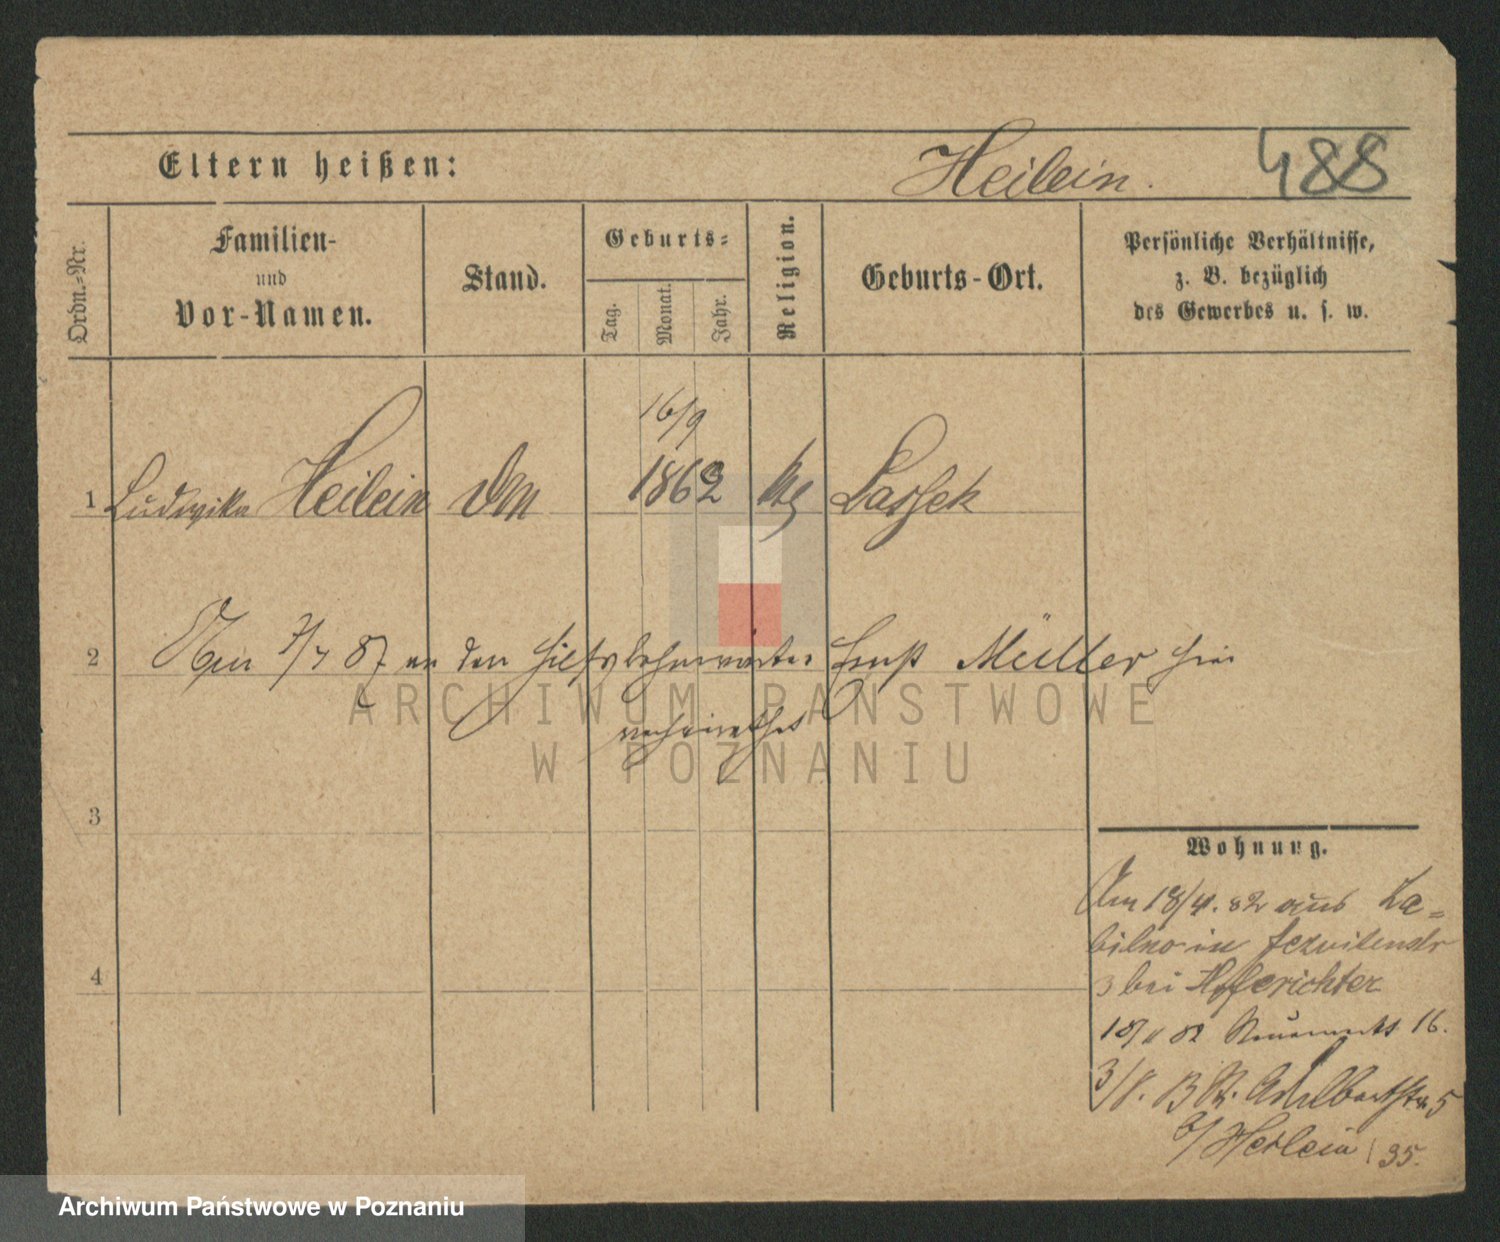 Eltern heißen: Heilein. 488
Ordn.-Nr.
Familien-
und
Vor-Namen.
Stand.
Geburts-
Tag.
Monat.
Jahr.
Religion.
Geburts-Ort.
Persönliche Verhältnisse,
z. B. bezüglich
des Gewerbes u. s. w.
16/9
1 Ludwika Heilein 1862 Lassek
2 87 an den Hilfsbahnwärter Ernst Müller hier
verheirathet
3
4
Wohnung.
Am 18/4. 82 aus La-
in Jezuitenstr
3 bei Hoferichter
82 Neuemarkt 16.
3/8. B St. Adalbertstr. 5
b/ Heilein 35.
ARCHIWUM PAŃSTWOWE
W POZNANIU
Archiwum Państwowe w Poznaniu